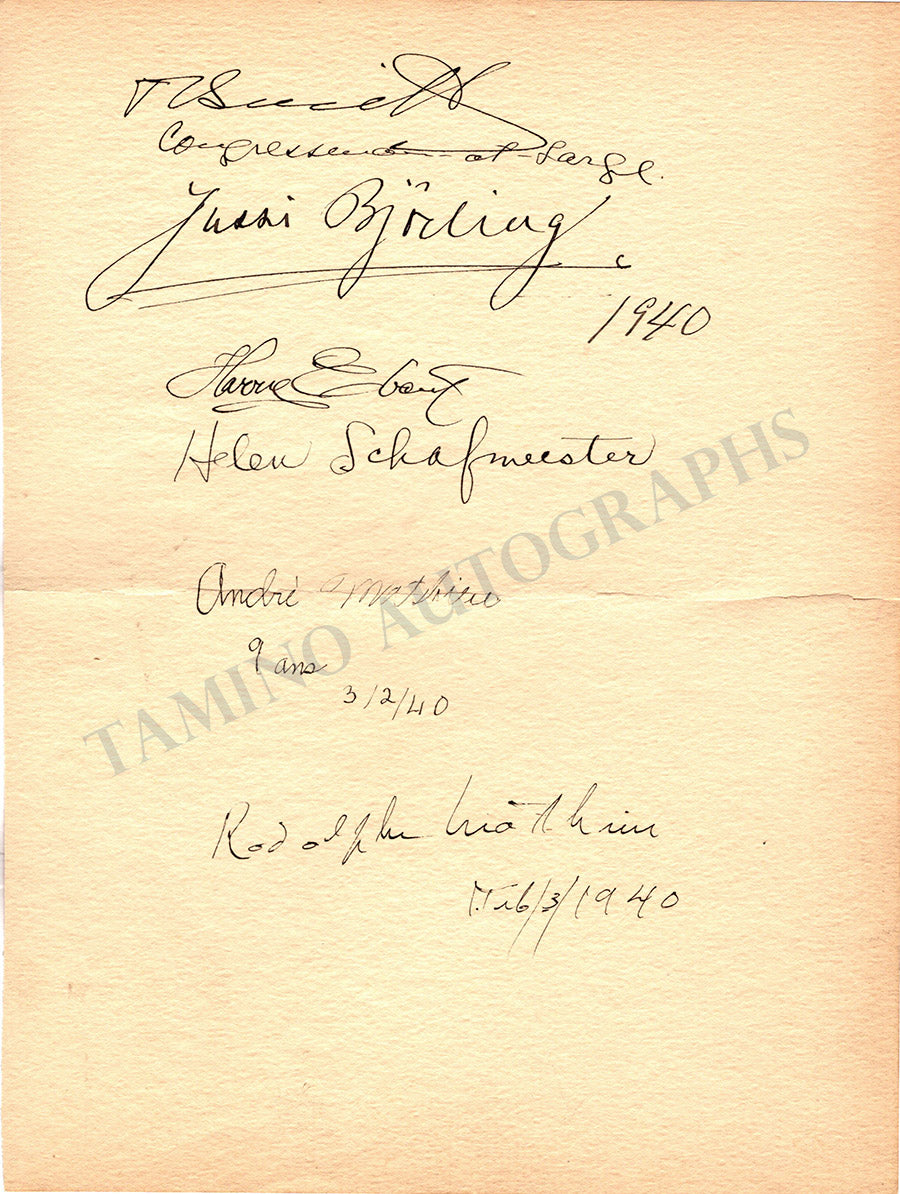 T V Smith
Congressman-at-Large.
Jussi Björling
1940
Helen Schafmeester
André Mathieu
9 ans
3/2/40
Rodolphe Mathieu
Feb/3/1940
TAMINO AUTOGRAPHS